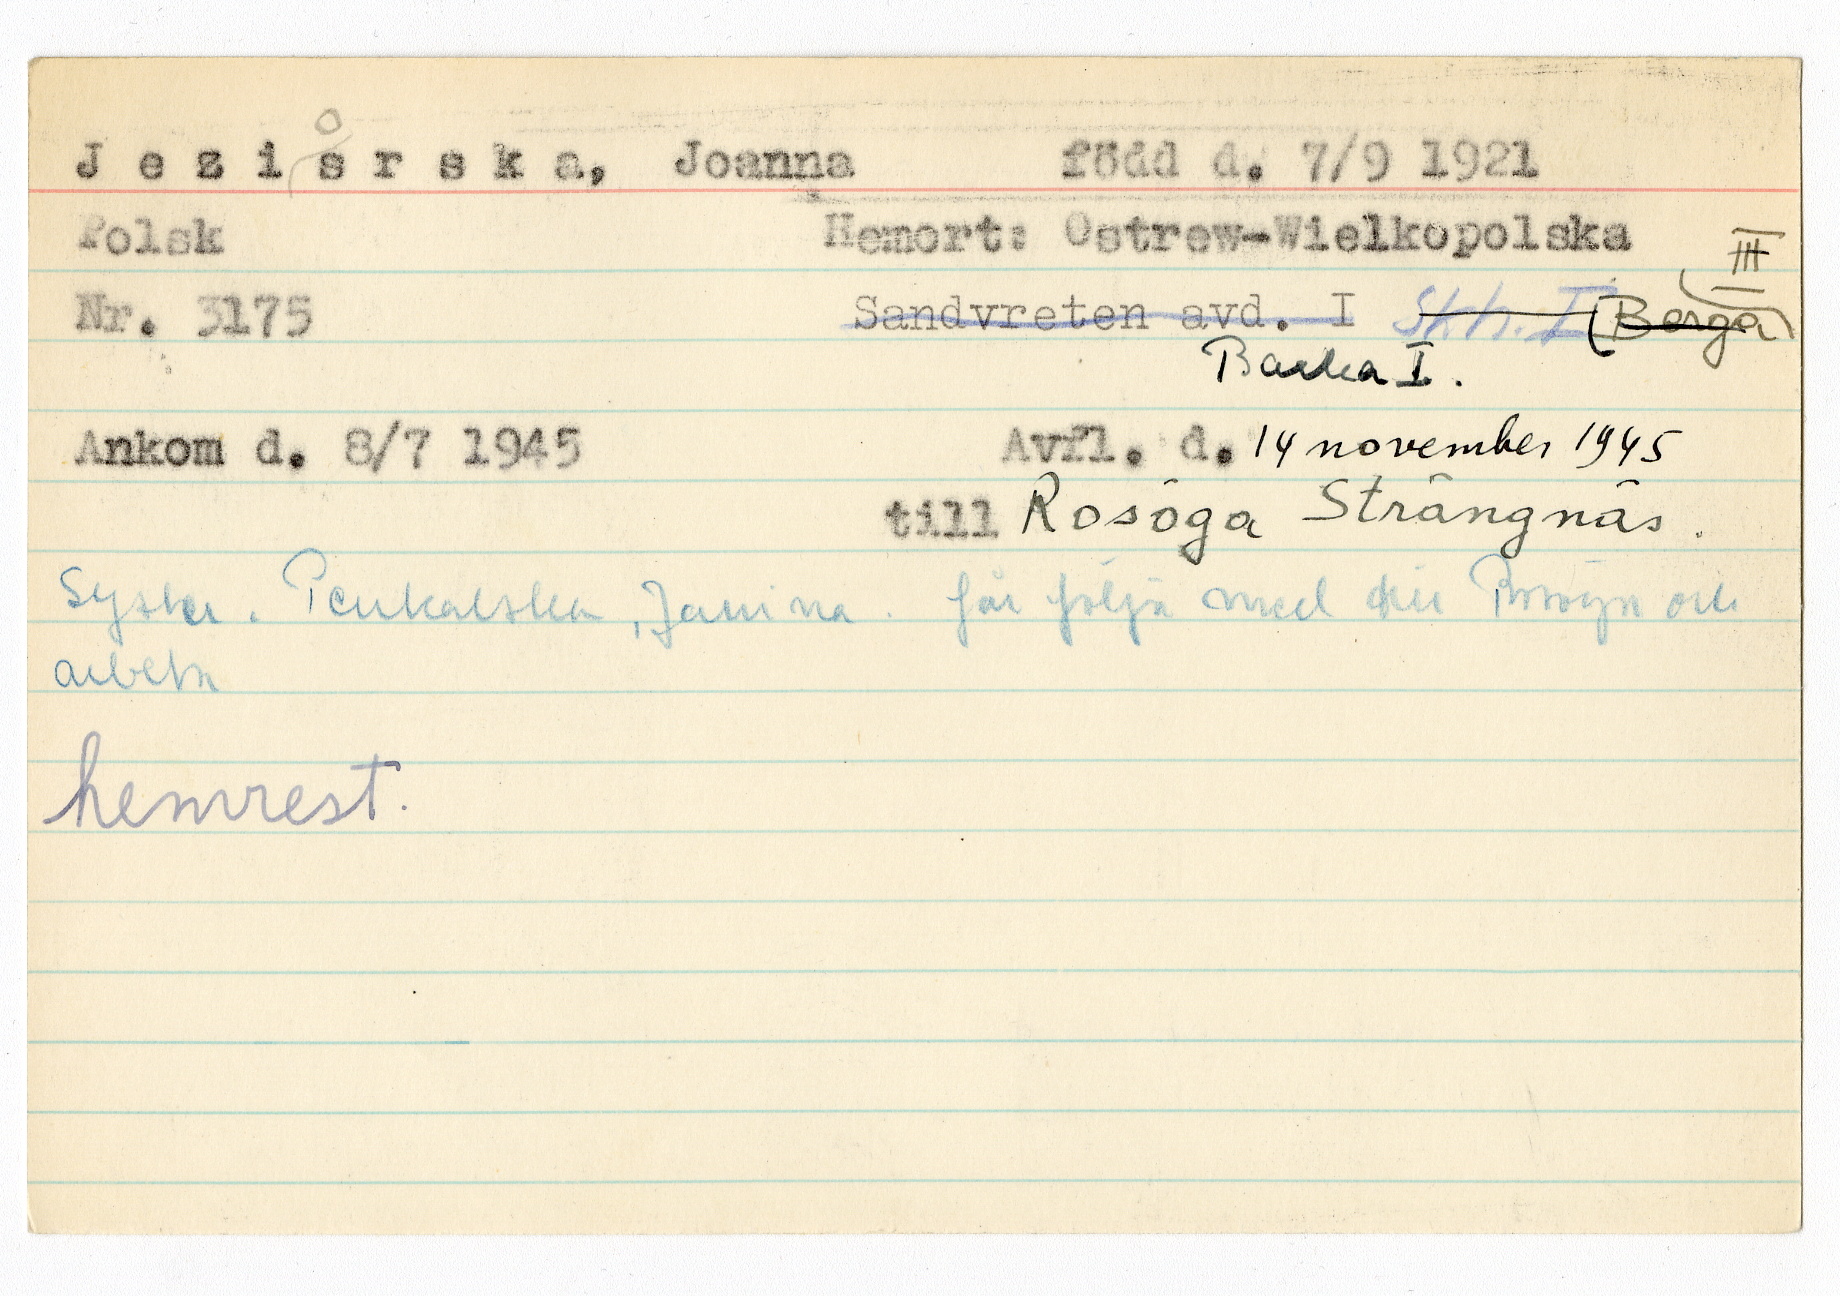 o
Jezisrska, Joanna född d. 7/9 1921
Polsk Hemort: Ostrew-Wielkopolska
III
Nr. 3175 Sandvreten avd. I Skh. I (Berga)
Barka I.
Ankom d. 8/7 1945 Avfl. d. 14 november 1945
till Rosöga Strängnäs.
Syster. Penkalska, Janina. får följa med till och
arbeta
hemrest.